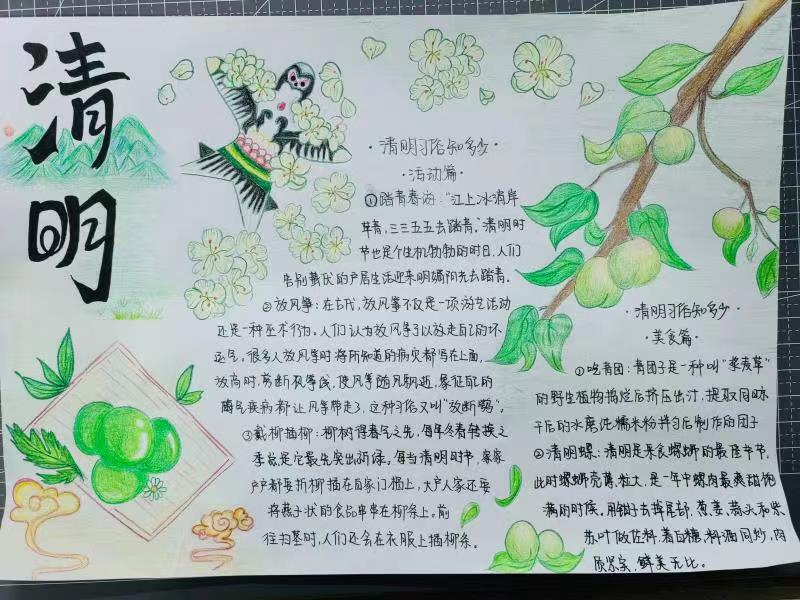 清明
·清明习俗知多少·
·活动篇·
①踏青春游:“江上冰消岸
草青,三三五五去踏青。”清明时
节也是个生机勃勃的时日,人们
告别蛰伏的户居生活迎来明媚阳光去踏青。
②放风筝:在古代,放风筝不仅是一项游艺活动
还是一种巫术行为。人们认为放风筝可以放走自己的坏
运气。很多人放风筝时将所知道的病灾都写在上面,
放高时,剪断风筝线,使风筝随风飘逝,象征自己的
疾病都让风筝带走了,这种习俗又叫“放断鹞”。
③戴柳插柳:柳树得春气之先,每年冬春转换之
季总是它最先突出新绿。每当清明时节,家家
户户都要折柳插在自家门楣上,大户人家还要
将燕子状的食品串串在柳条上。前
往扫墓时,人们还会在衣服上插柳条。
·清明习俗知多少·
·美食篇·
①吃青团:青团子是一种叫“浆麦草”
的野生植物捣烂后挤压出汁,提取同晾
干后的水磨纯糯米粉拌匀后制作的团子
②清明螺:清明是采食螺蛳的最佳时节,
此时螺蛳壳薄,粒大,是一年中螺肉最爽甜饱
满的时候。用钳子去掉尾部,葱、姜、荞头和紫
苏叶做佐料,着白糖,料酒同炒,肉
质紧实,鲜美无比。